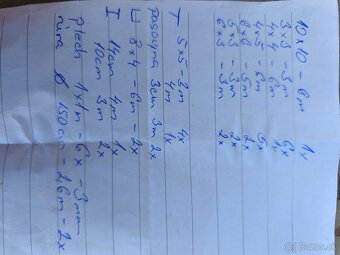 10x10 - 6m 1x
3x3 - 3m 6x
4x4 - 6m 1x
4x5 - 6m 5x
6x6 - 5m 2x
5x3 - 3m 2x
6x3 - 3m 2x
T 5x5 - 3m 4x
4m 1x
pasovina 3cm 3m 2x
U 8x4 - 6m - 2x
I 14cm 4m 1x
10cm 3m 2x
plech 1x1m - 6x - 3mm
rúra Ø 150cm - 2,6m - 2x
bazos.sk